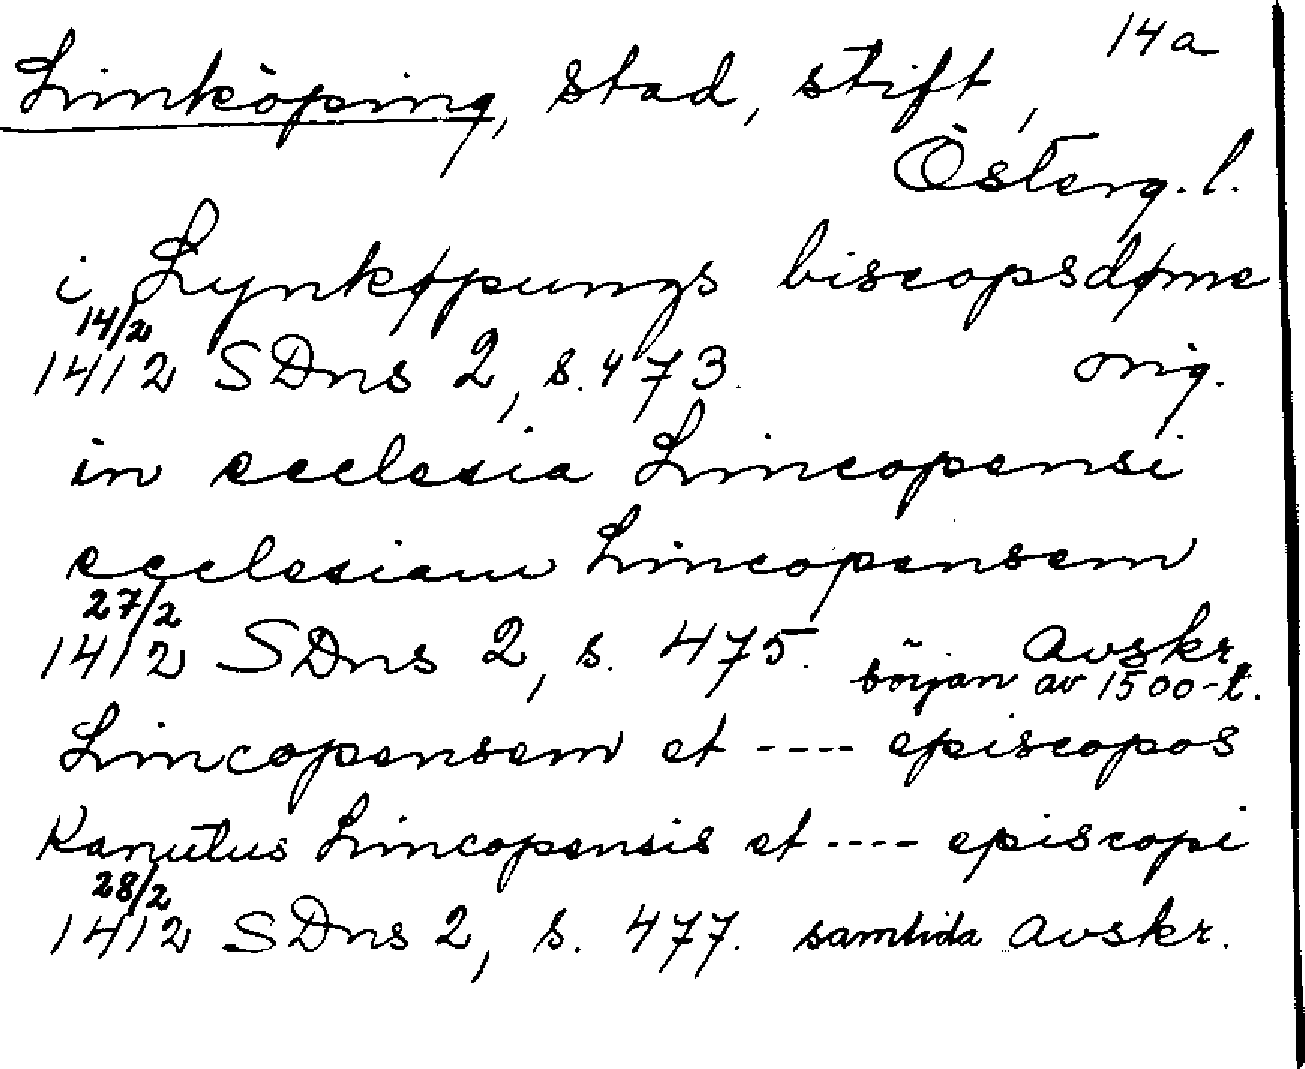 14a
Linköping, stad, stift,
Österg. l.
i Lynkøpungs biscopsdøme
14/2
1412 SDns 2, s. 473. orig.
in ecclesia Lincopensi
ecclesiam Lincopensem
27/2
1412 SDns 2, s. 475. Avskr.
början av 1500-t.
Lincopensem et ---- episcopos
Kanutus Lincopensis et ---- episcopi
28/2
1412 SDns 2, s. 477. samtida Avskr.